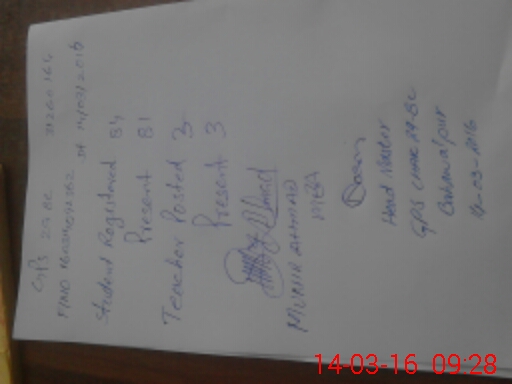 GPS 29 BC 31260166
Student Registered 84
Present 81
Teacher Posted 3
Present 3
MUNIR AHMAD
MEA
Head Master
GPS Chak 29-BC
Bahawalpur
14-03-2016
14-03-16 09:28